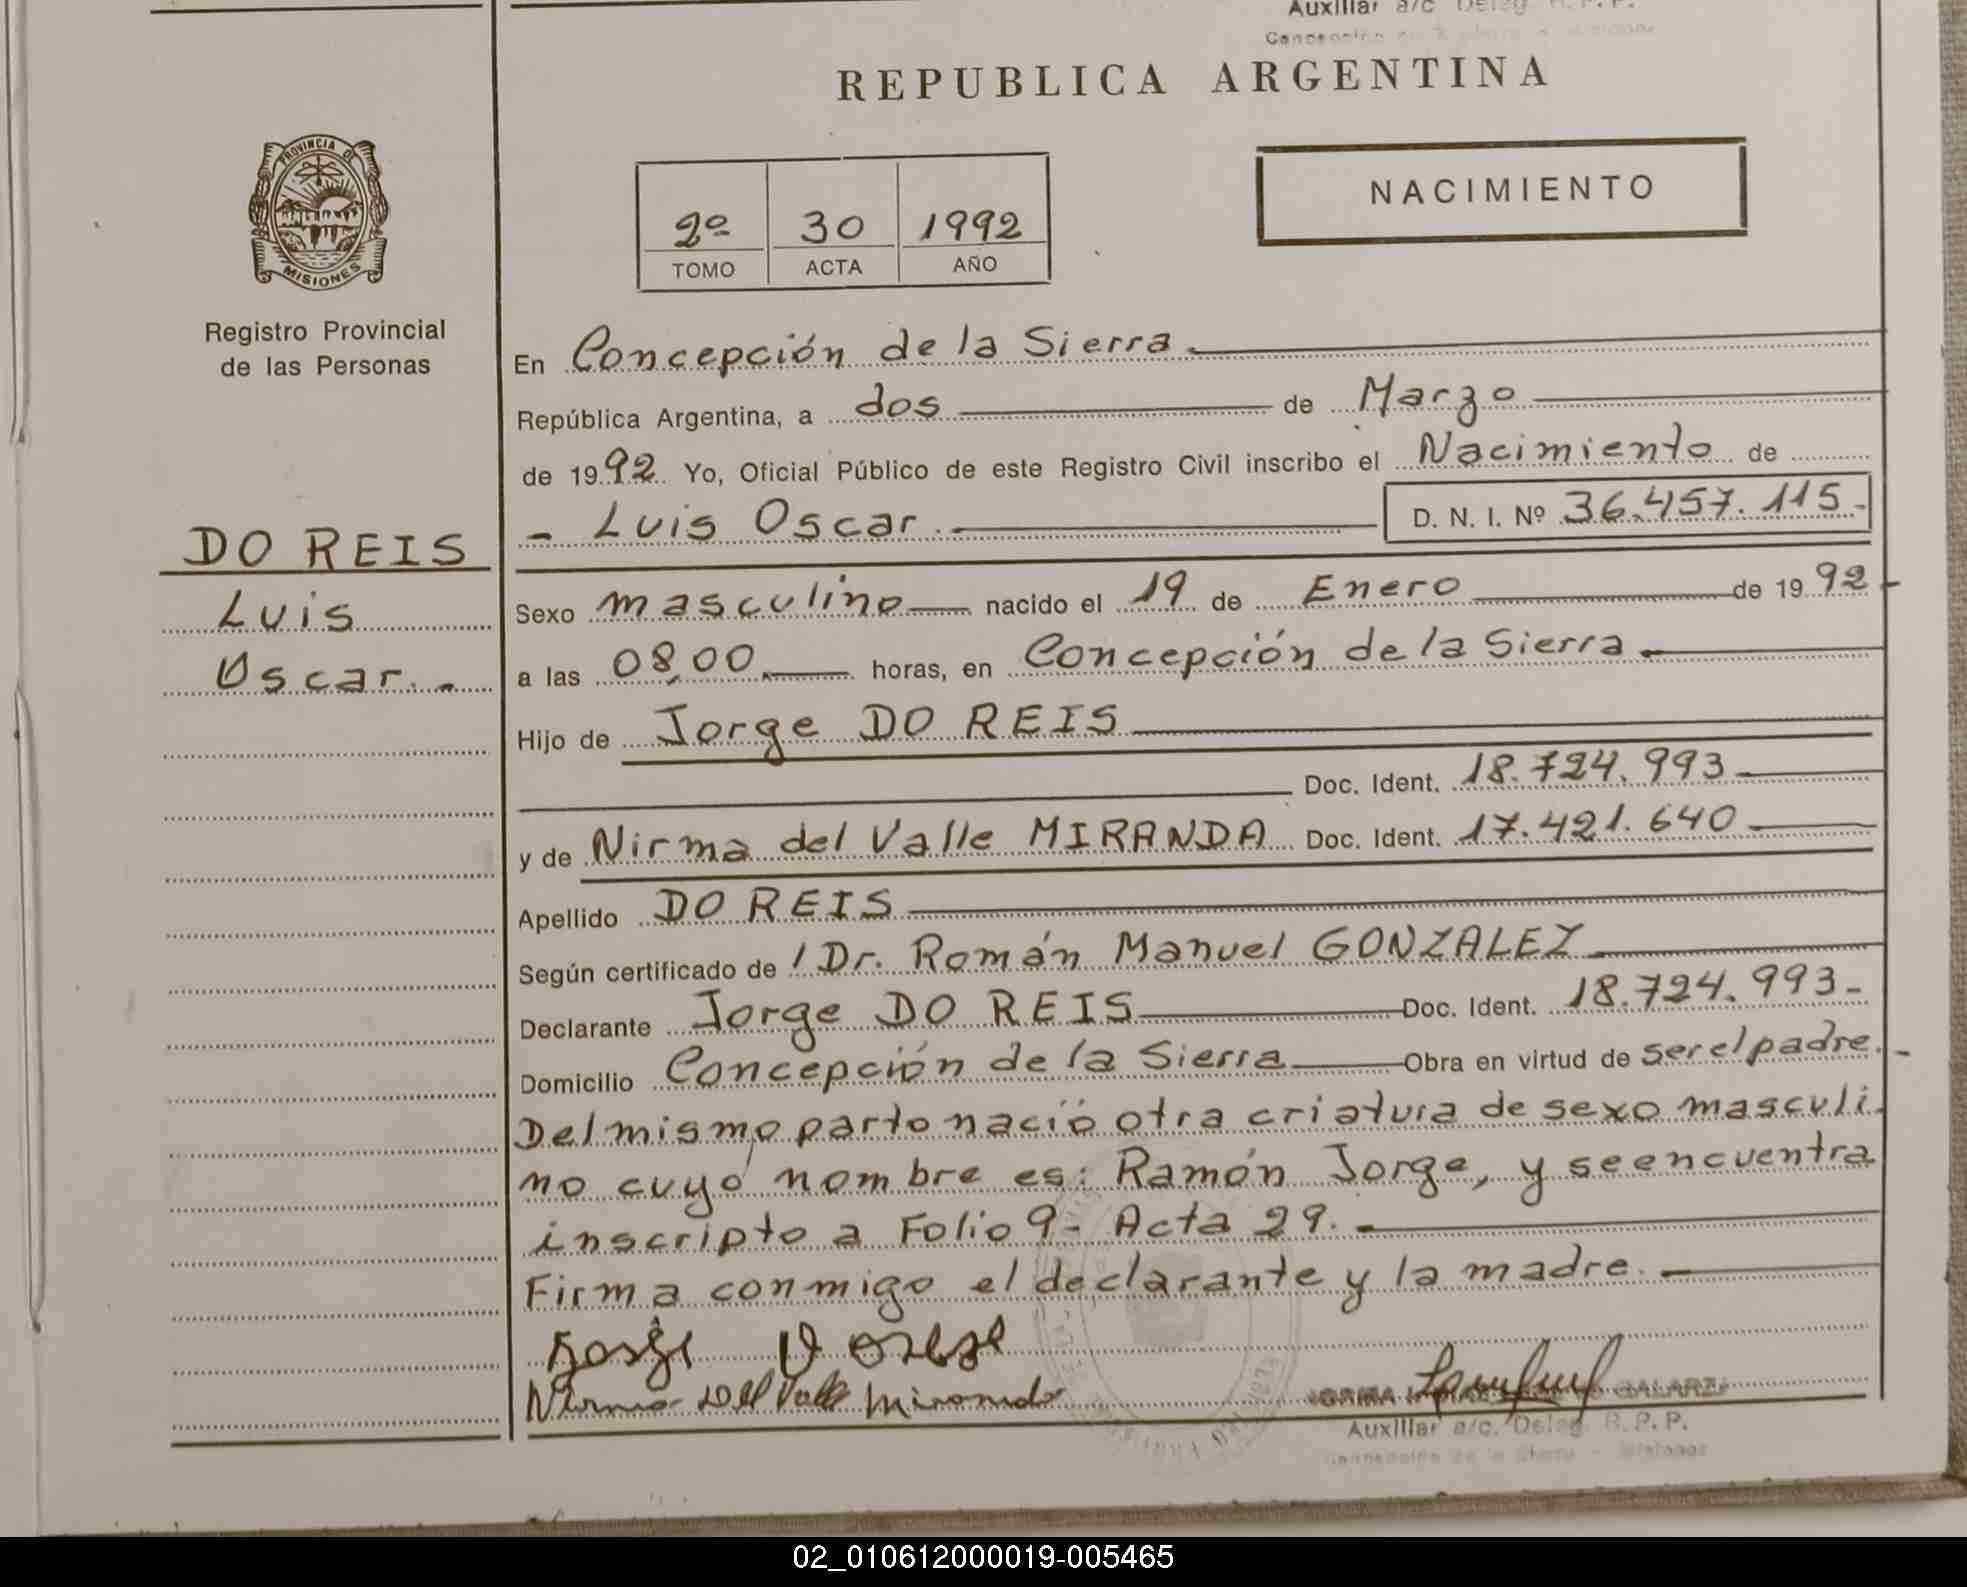 Auxiliar a/c Deleg R.P.P.
REPUBLICA ARGENTINA
PROVINCIA DE
MISIONES
Registro Provincial
de las Personas
2º 30 1992
TOMO ACTA AÑO
NACIMIENTO
DO REIS
Luis
Oscar.-
En Concepción de la Sierra
República Argentina, a dos de Marzo
de 1992 Yo, Oficial Público de este Registro Civil inscribo el Nacimiento de
- Luis Oscar. D. N. I. Nº 36.457.115-
Sexo masculino nacido el 19 de Enero de 1992-
a las 08,00 horas, en Concepción de la Sierra
Hijo de Jorge DO REIS
Doc. Ident. 18.724.993
y de Nirma del Valle MIRANDA Doc. Ident. 17.421.640
Apellido DO REIS
Según certificado de / Dr. Román Manuel GONZALEZ
Declarante Jorge DO REIS Doc. Ident. 18.724.993-
Domicilio Concepción de la Sierra Obra en virtud de ser el padre.-
Del mismo parto nació otra criatura de sexo masculi
no cuyo nombre es: Ramón Jorge, y se encuentra
inscripto a Folio 9- Acta 29.-
Firma conmigo el declarante y la madre.-
Nirma Del Valle Miranda
GALARZA
Auxiliar a/c. Deleg R.P.P.
02_010612000019-005465